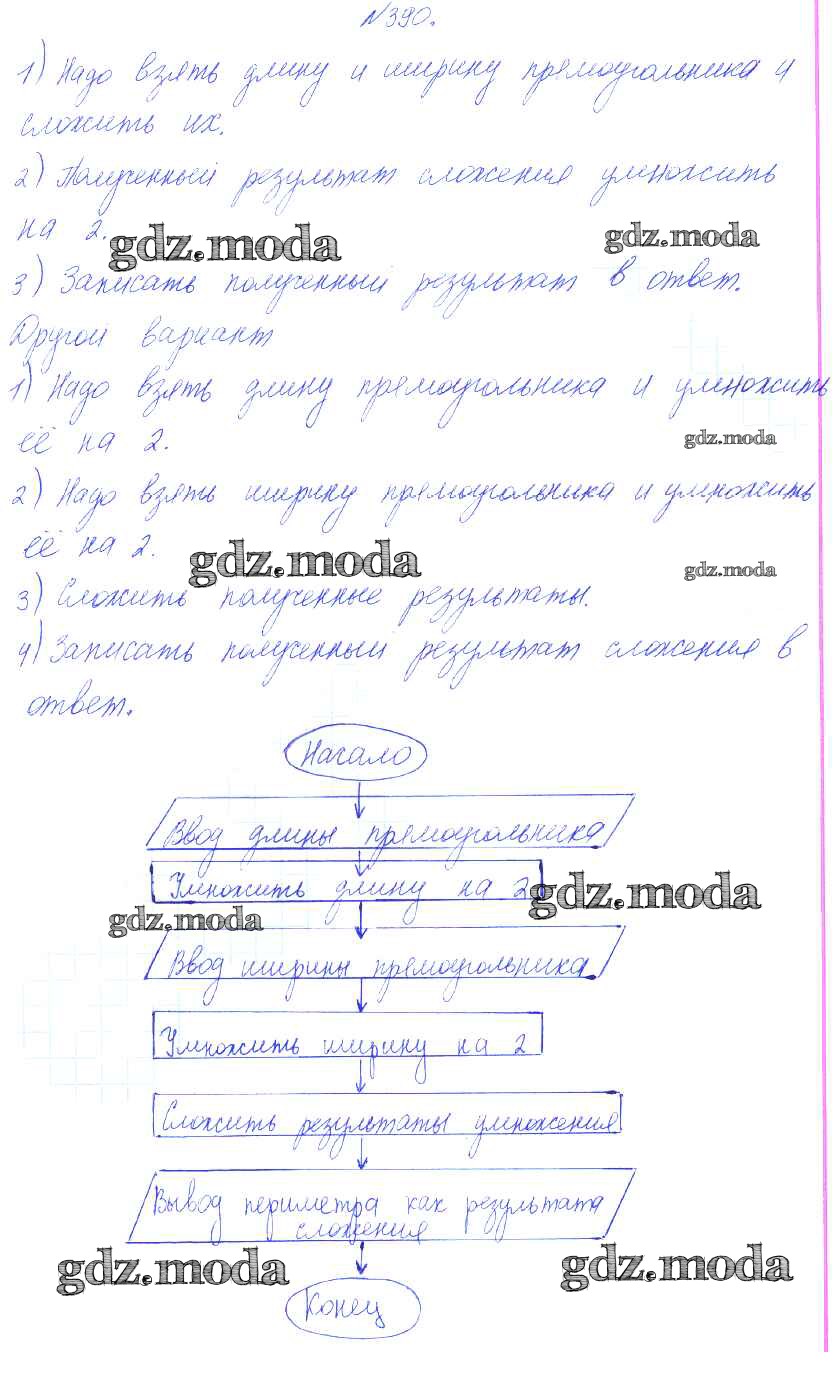 №390.
1) Надо взять длину и ширину прямоугольника и
сложить их.
2) Полученный результат сложения умножить
на 2.
gdz.moda
gdz.moda
3) Записать полученный результат в ответ.
Другой вариант
1) Надо взять длину прямоугольника и умножить
её на 2.
gdz.moda
2) Надо взять ширину прямоугольника и умножить
её на 2.
gdz.moda
gdz.moda
3) Сложить полученные результаты.
4) Записать полученный результат сложения в
ответ.
Начало
Ввод длины прямоугольника
Умножить длину на 2
gdz.moda
gdz.moda
Ввод ширины прямоугольника
Умножить ширину на 2
Сложить результаты умножения
Вывод периметра как результата
сложения
gdz.moda
gdz.moda
Конец